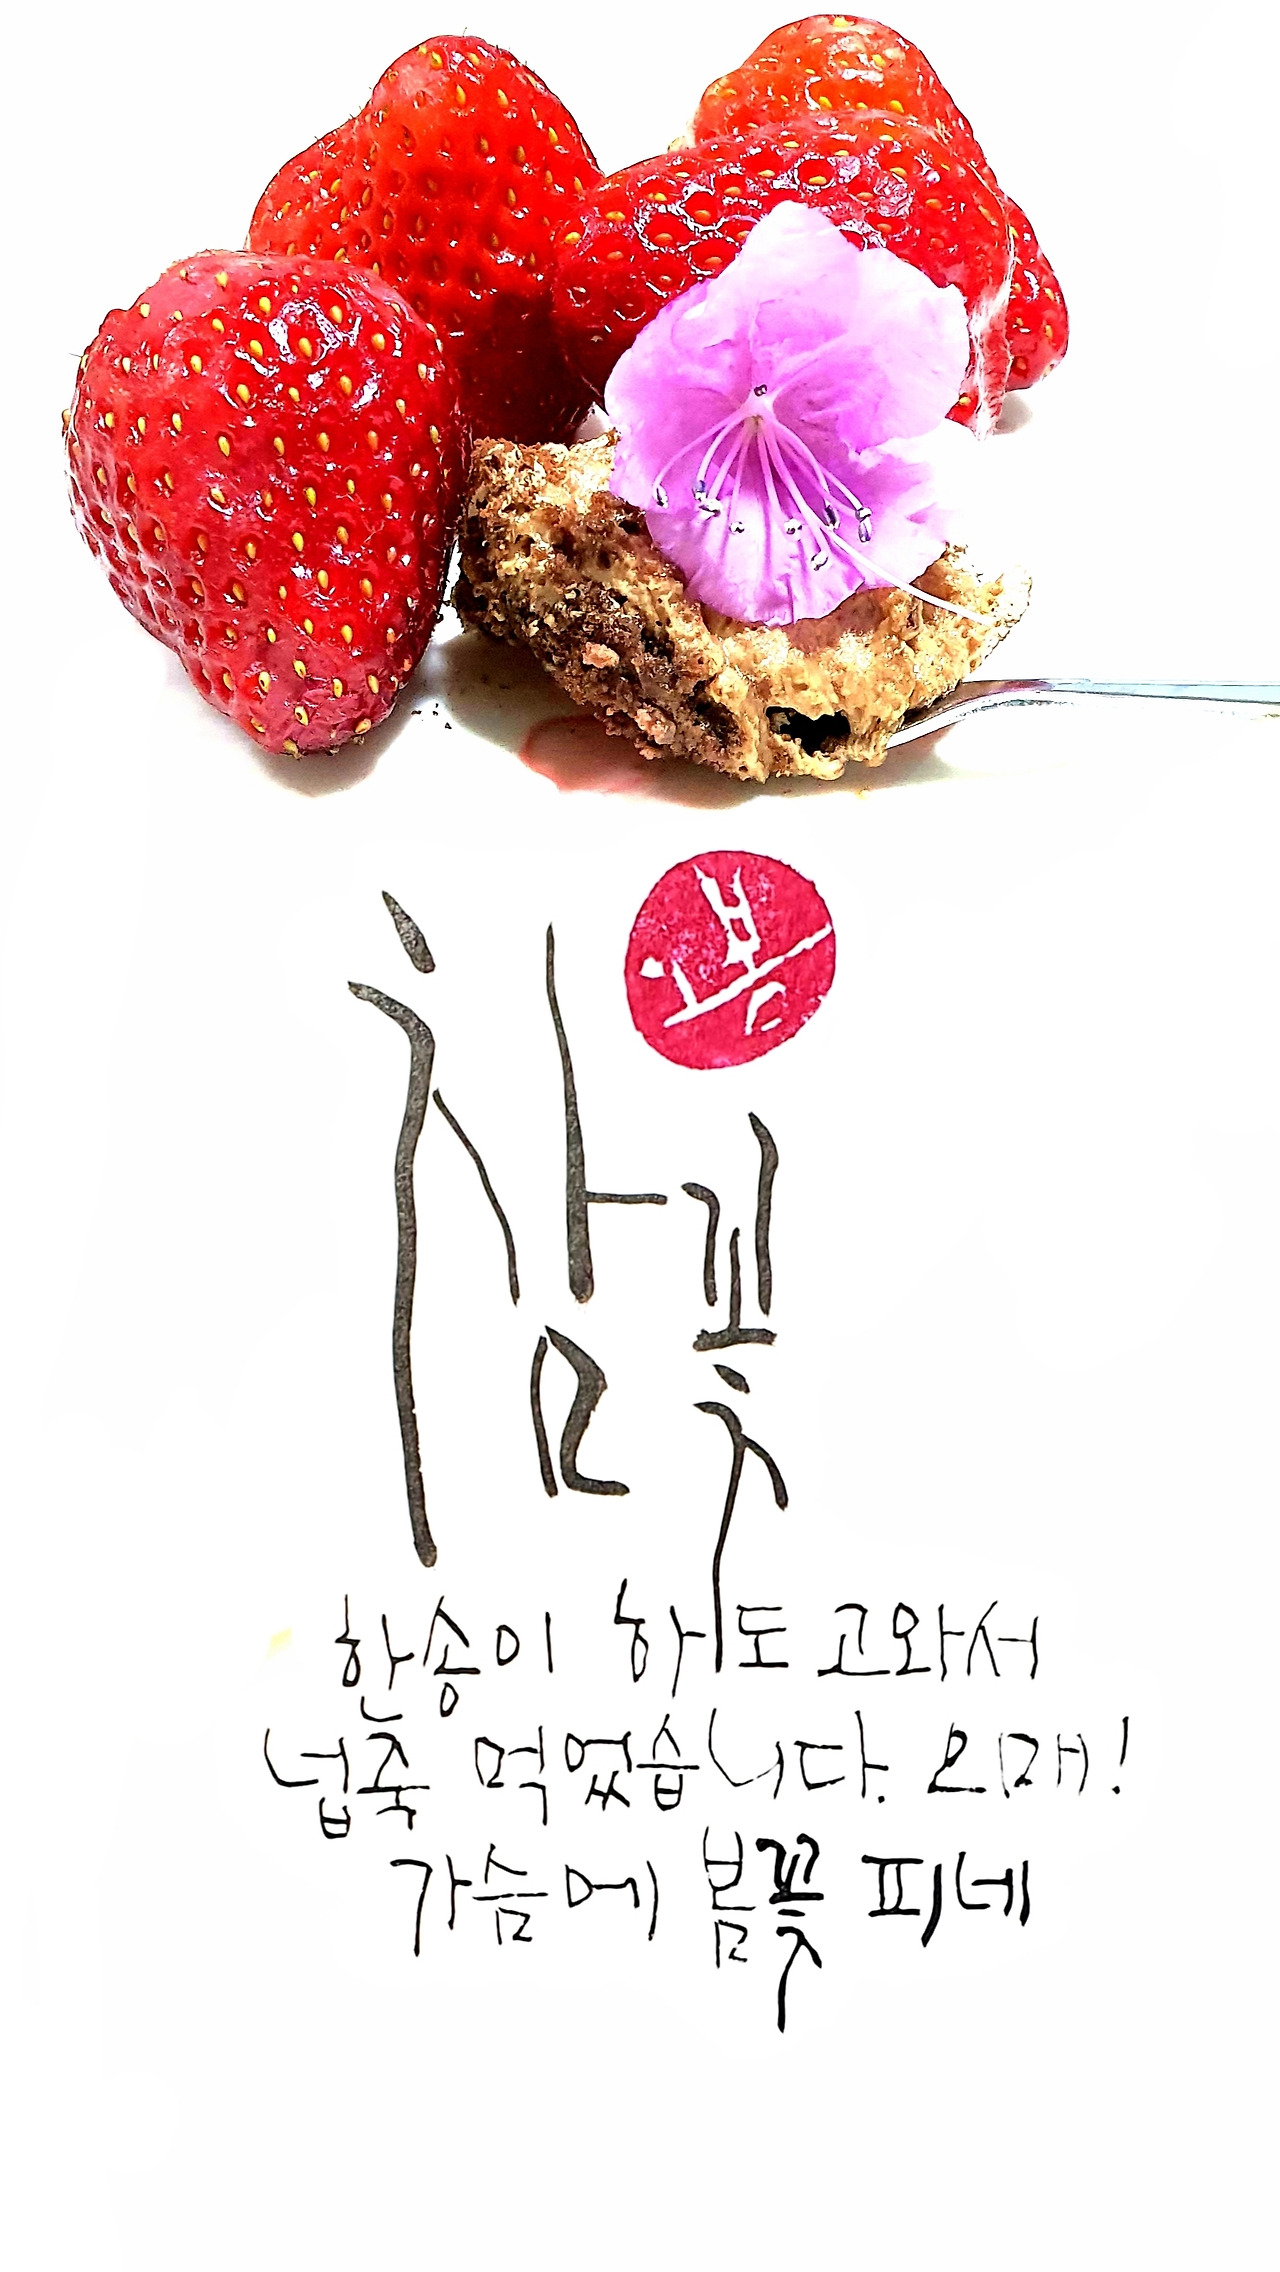 참꽃
한송이 하도 고와서
넙죽 먹었습니다. 오매!
가슴에 봄꽃 피네